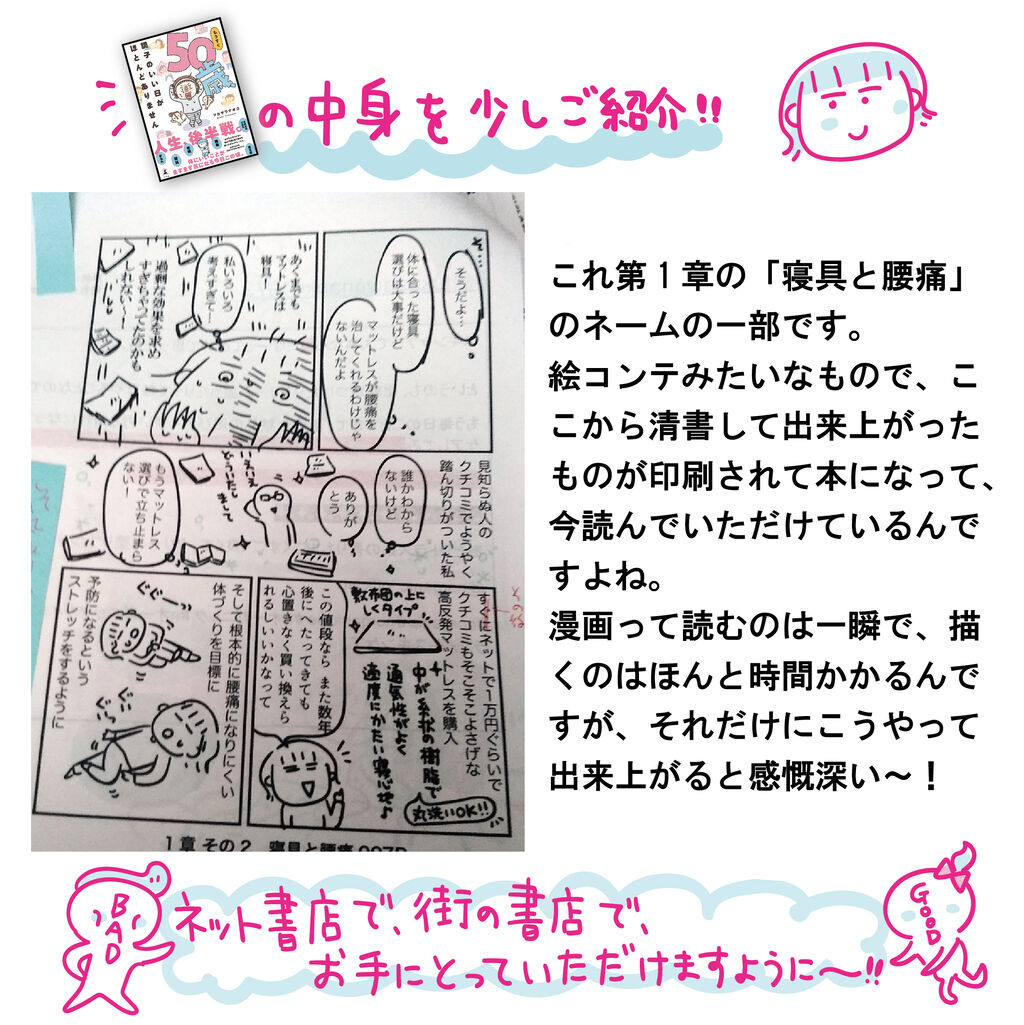 もうすぐ
50歳
調子のいい日が
ほとんどありません
アカサワナオコ
人生、後半戦。
体にいいことが
ますます気になる今日この頃。
の中身を少しご紹介!!
そうだよ…
体に合った寝具
選びは大事だけど
マットレスが腰痛を
治してくれるわけじゃ
ないんだよ
あくまでも
マットレスは
寝具!
私いろいろ
考えすぎて!
過剰な効果を求め
すぎちゃってたのかも
しれない〜!
見知らぬ人の
クチコミでようやく
踏ん切りがついた私
誰かわから
ないけど
ありが
とう
いえいえ
どういたし
まして
もうマットレス
選びで立ち止まら
ない!
すぐにネットで1万円ぐらいで
クチコミもそこそこよさげな
高反発マットレスを購入
敷布団の上に
しくタイプ
中が糸状の樹脂で
通気性がよく
適度にかたい寝心地♪
丸洗いOK!!
この値段なら また数年
後にへたってきても
心置きなく買い換えら
れるしいいかなって
そして根本的に腰痛になりにくい
体づくりを目標に
予防になるという
ストレッチをするように
ぐぐーっ
ぐぐ
ぐーっ
1章 その2 寝具と腰痛
これ第1章の「寝具と腰痛」
のネームの一部です。
絵コンテみたいなもので、こ
こから清書して出来上がった
ものが印刷されて本になって、
今読んでいただけているんで
すよね。
漫画って読むのは一瞬で、描
くのはほんと時間かかるんで
すが、それだけにこうやって
出来上がると感慨深い〜!
BAD
ネット書店で、街の書店で、
お手にとっていただけますように〜!!
GOOD